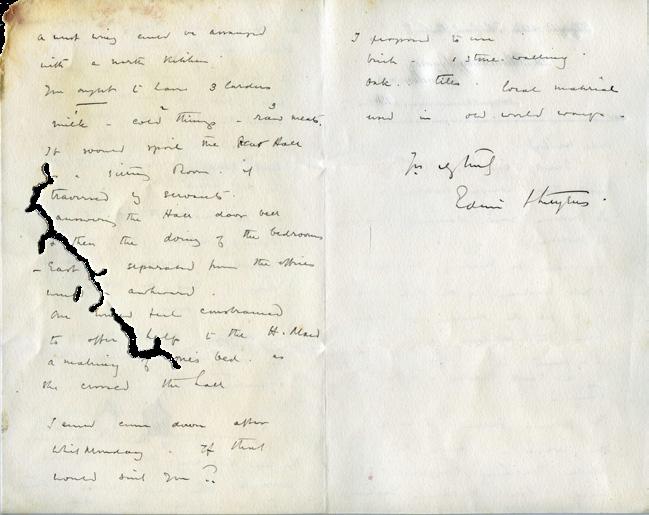 a west wing could be arranged
with a north Kitchen.
You ought to have 3 Larders
1 2 3
milk - cold things - raw meats.
It would spoil the Great Hall
a sitting Room. if
traversed by servants.
answering the Hall door bell
then the doing of the bedrooms
- East separated from the offices
awkward.
One would feel constrained
to offer help to the H. Maid
a making of one's bed. as
she crossed the hall
I could come down after
Whit Monday. If that
would suit you?
I proposed to use
brick - stone walling
oak. tiles. local material
used in old world ways.
Yrs